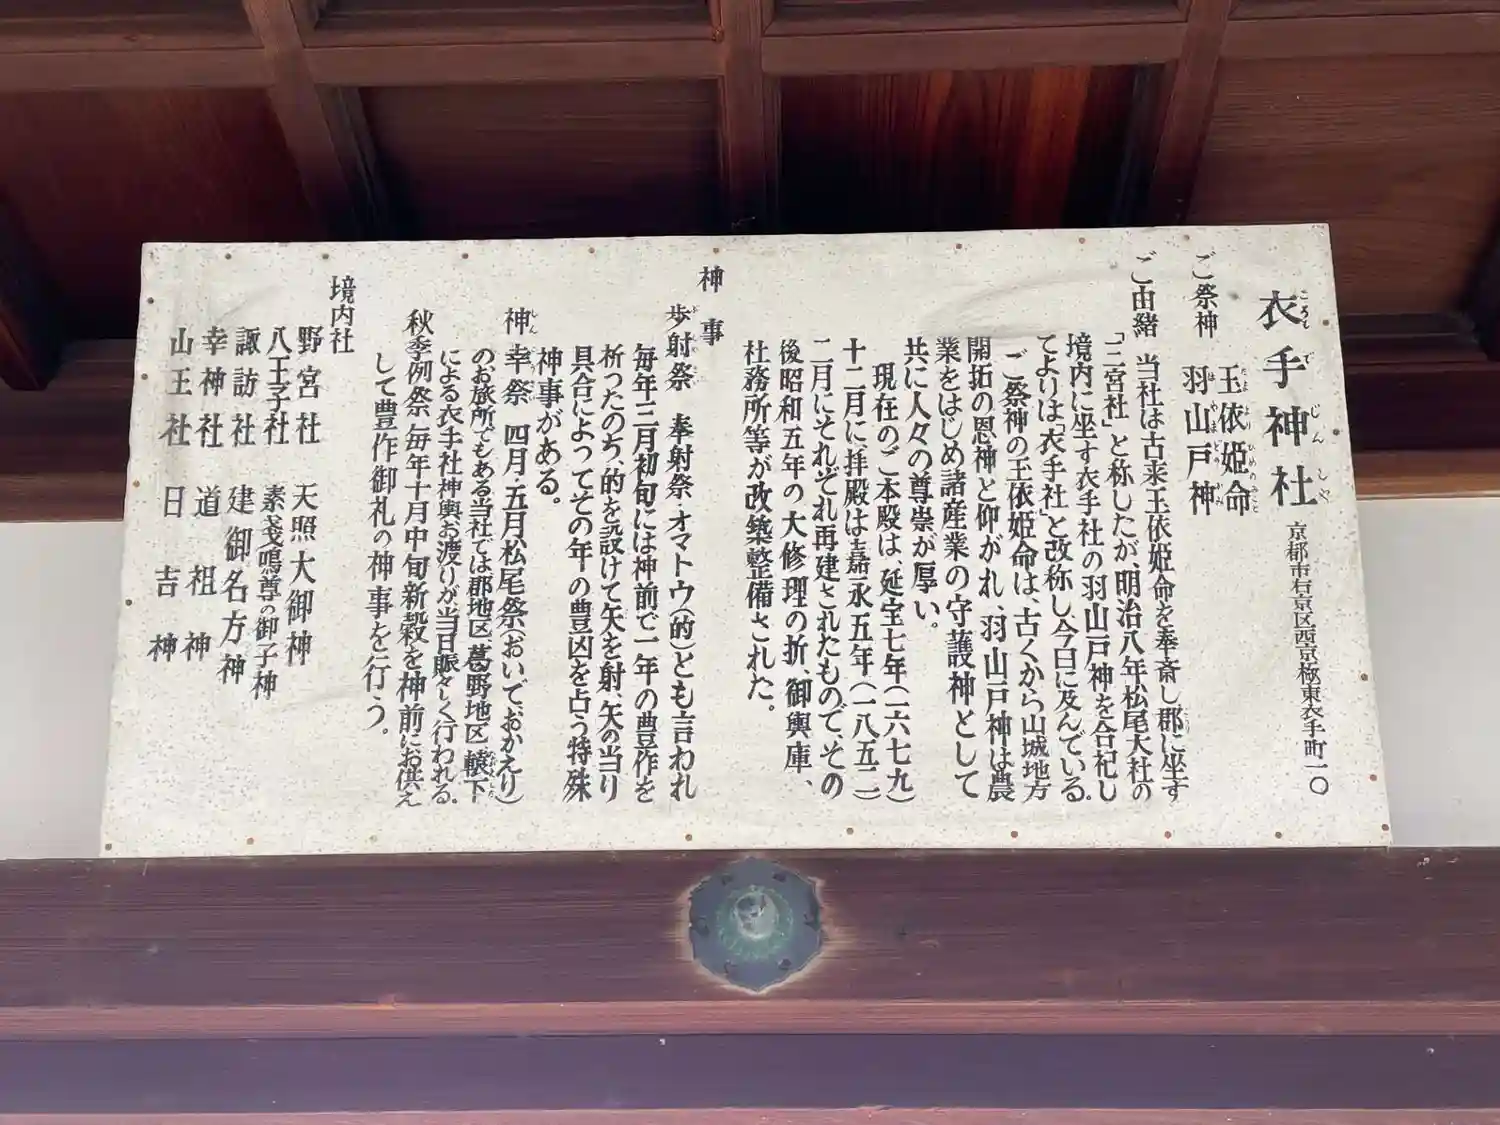 衣手神社 京都市右京区西京極東衣手町一〇
ころも で じん しゃ
ご祭神 玉依姫命
たま より ひめの みこと
羽山戸神
は やま とのかみ
ご由緒 当社は古来玉依姫命を奉斎し郡に坐す
「三宮社」と称したが、明治八年松尾大社の
境内に坐す衣手社の羽山戸神を合祀し
てよりは「衣手社」と改称し今日に及んでいる。
ご祭神の玉依姫命は、古くから山城地方
開拓の恩神と仰がれ、羽山戸神は農
業をはじめ諸産業の守護神として
共に人々の尊崇が厚い。
現在のご本殿は、延宝七年(一六七九)
十二月に、拝殿は嘉永五年(一八五二)
二月にそれぞれ再建されたもので、その
後昭和五年の大修理の折、御輿庫、
社務所等が改築整備された。
神事
歩射祭 奉射祭・オマトウ(的)とも言われ
毎年三月初旬には神前で一年の豊作を
祈ったのち、的を設けて矢を射、矢の当り
具合によってその年の豊凶を占う特殊
神事がある。
神幸祭 四月・五月松尾祭(おいで、おかえり)
のお旅所でもある当社では郡地区、葛野地区、轅下
による衣手社神輿お渡りが当日賑々しく行われる。
秋季例祭 毎年十月中旬新穀を神前にお供え
して豊作御礼の神事を行う。
境内社
野宮社 天照大御神
八王子社 素戔嗚尊の御子神
諏訪社 建御名方神
幸神社 道祖神
山王社 日吉神